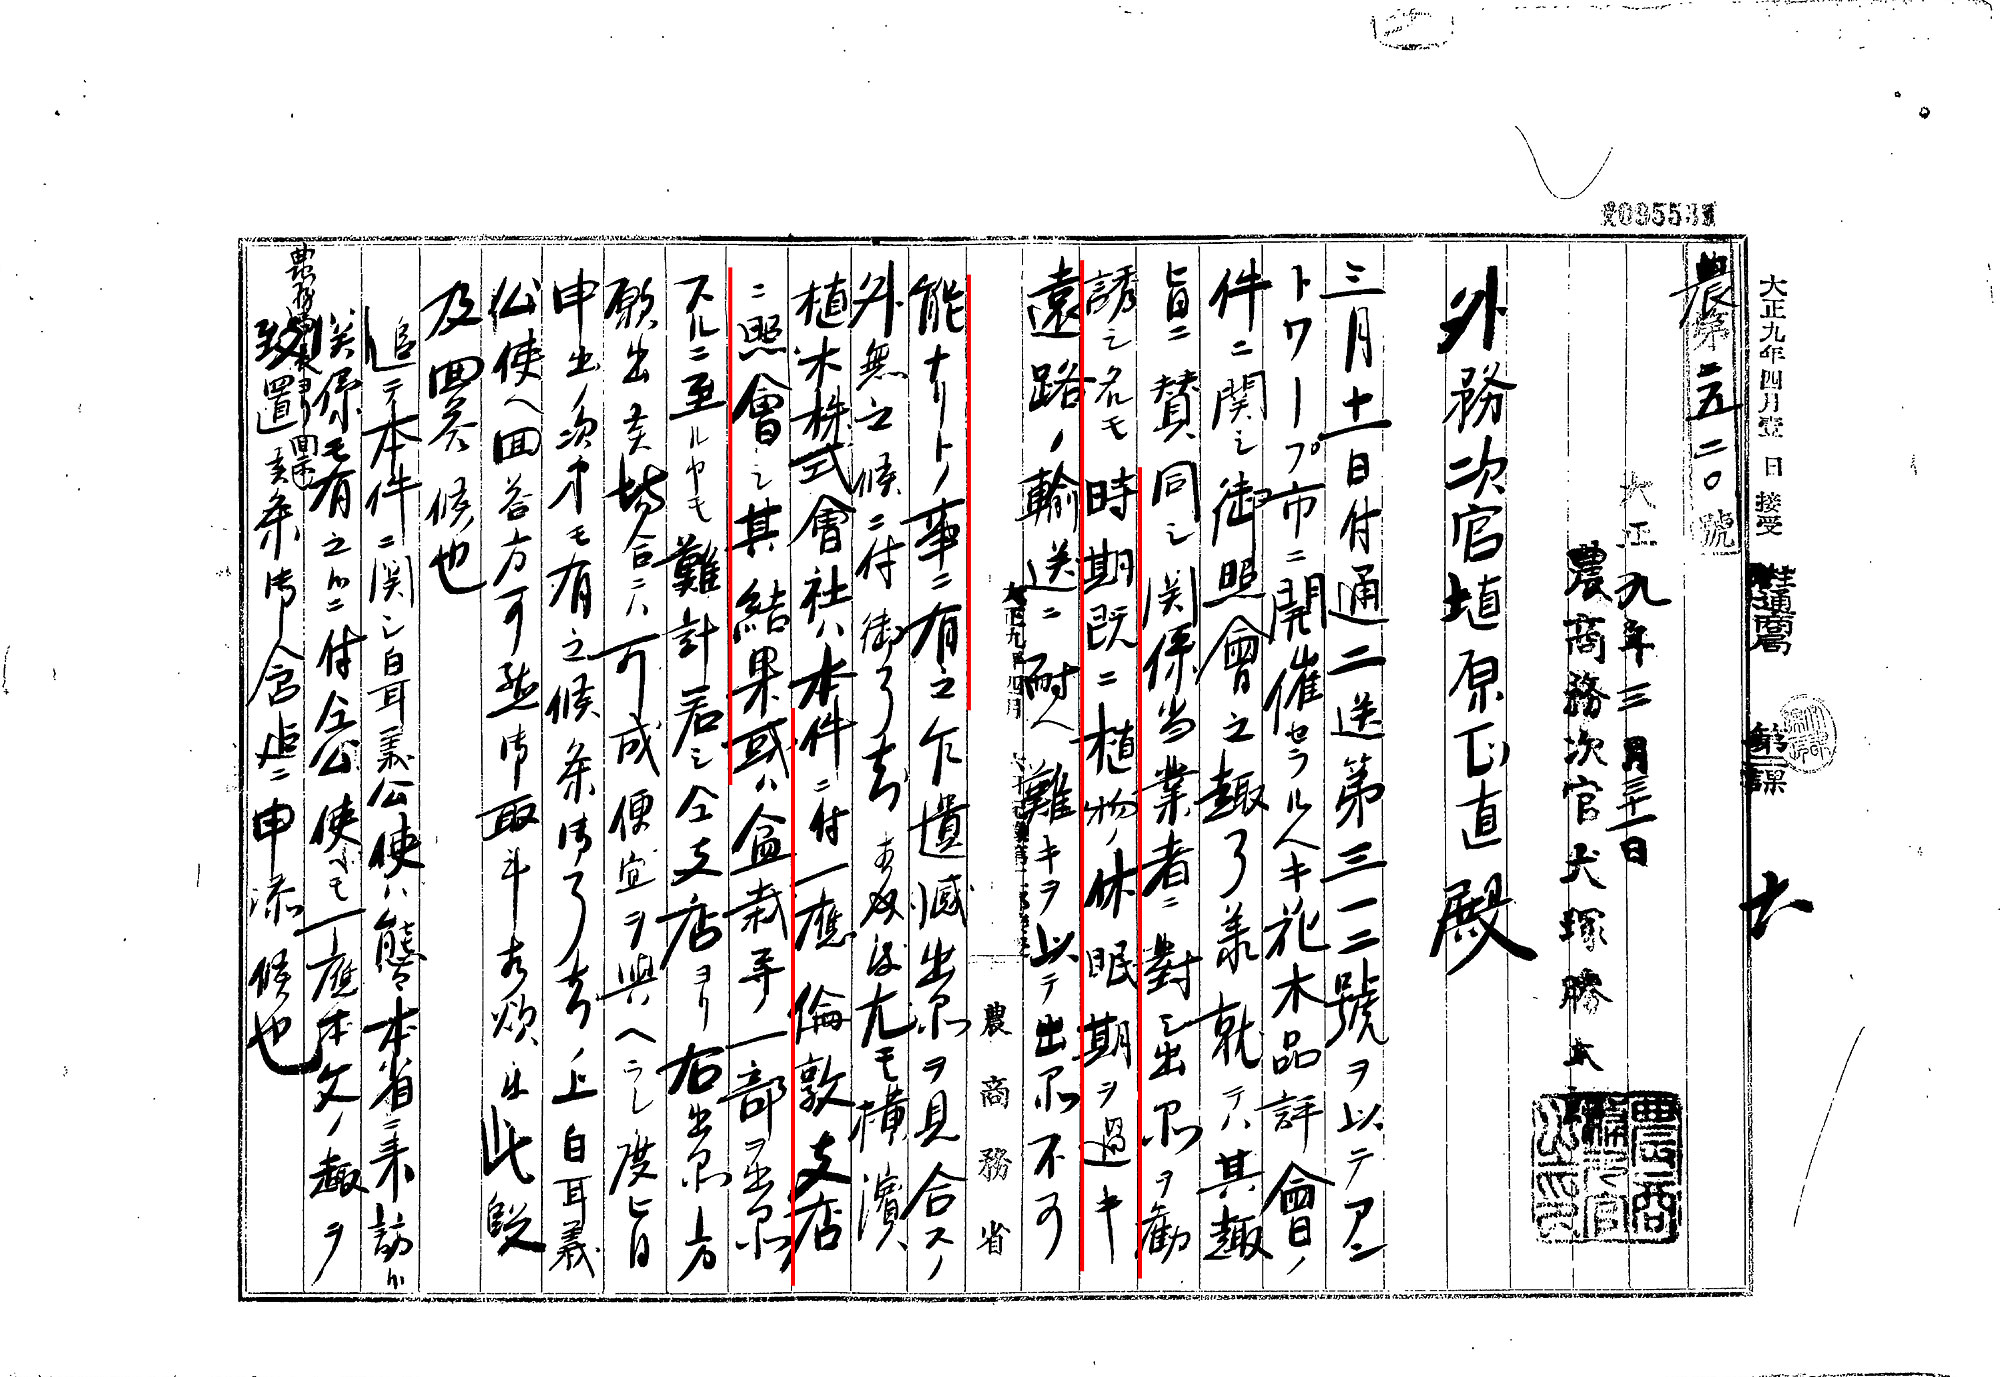 大正九年四月壹日接受
主 通商局 第二課
農第二五二〇號
大正九年三月三十一日
農商務次官犬塚勝太郎
外務次官埴原正直殿
三月十一日付通二送第三一二號ヲ以テアン
トワープ市ニ開催セラルヘキ花木品評會ノ
件ニ関シ御照會之趣了承就テハ其趣
旨ニ賛同シ関係当業者ニ對シ出品ヲ勸
誘シ
時期既ニ植物ノ休眠期ヲ過キ
遠路ノ輸送ニ耐ヘ難キヲ以テ出品不可
農商務省
能ナリトノ事ニ有之乍遺憾出品ヲ見合スノ
外無之候ニ付御了知
尤モ横濱
植木株式會社ハ本件ニ付一應倫敦支店
ニ照會シ其結果或ハ盆栽等一部ヲ出品
スルニ至ルヤモ難計若シ仝支店ヨリ右出品方
願出タル場合ニハ可成便宜ヲ與ヘラレ度旨
申出ノ次第モ有之候条御了知ノ上白耳義
公使ヘ回答方可然御取計
此段
及回答候也
追テ本件ニ関シ白耳義公使ハ態々本省ニ来訪
関係モ有之
ニ付仝公使ヘモ一應本文ノ趣ヲ
致置候条御含迄ニ申添候也